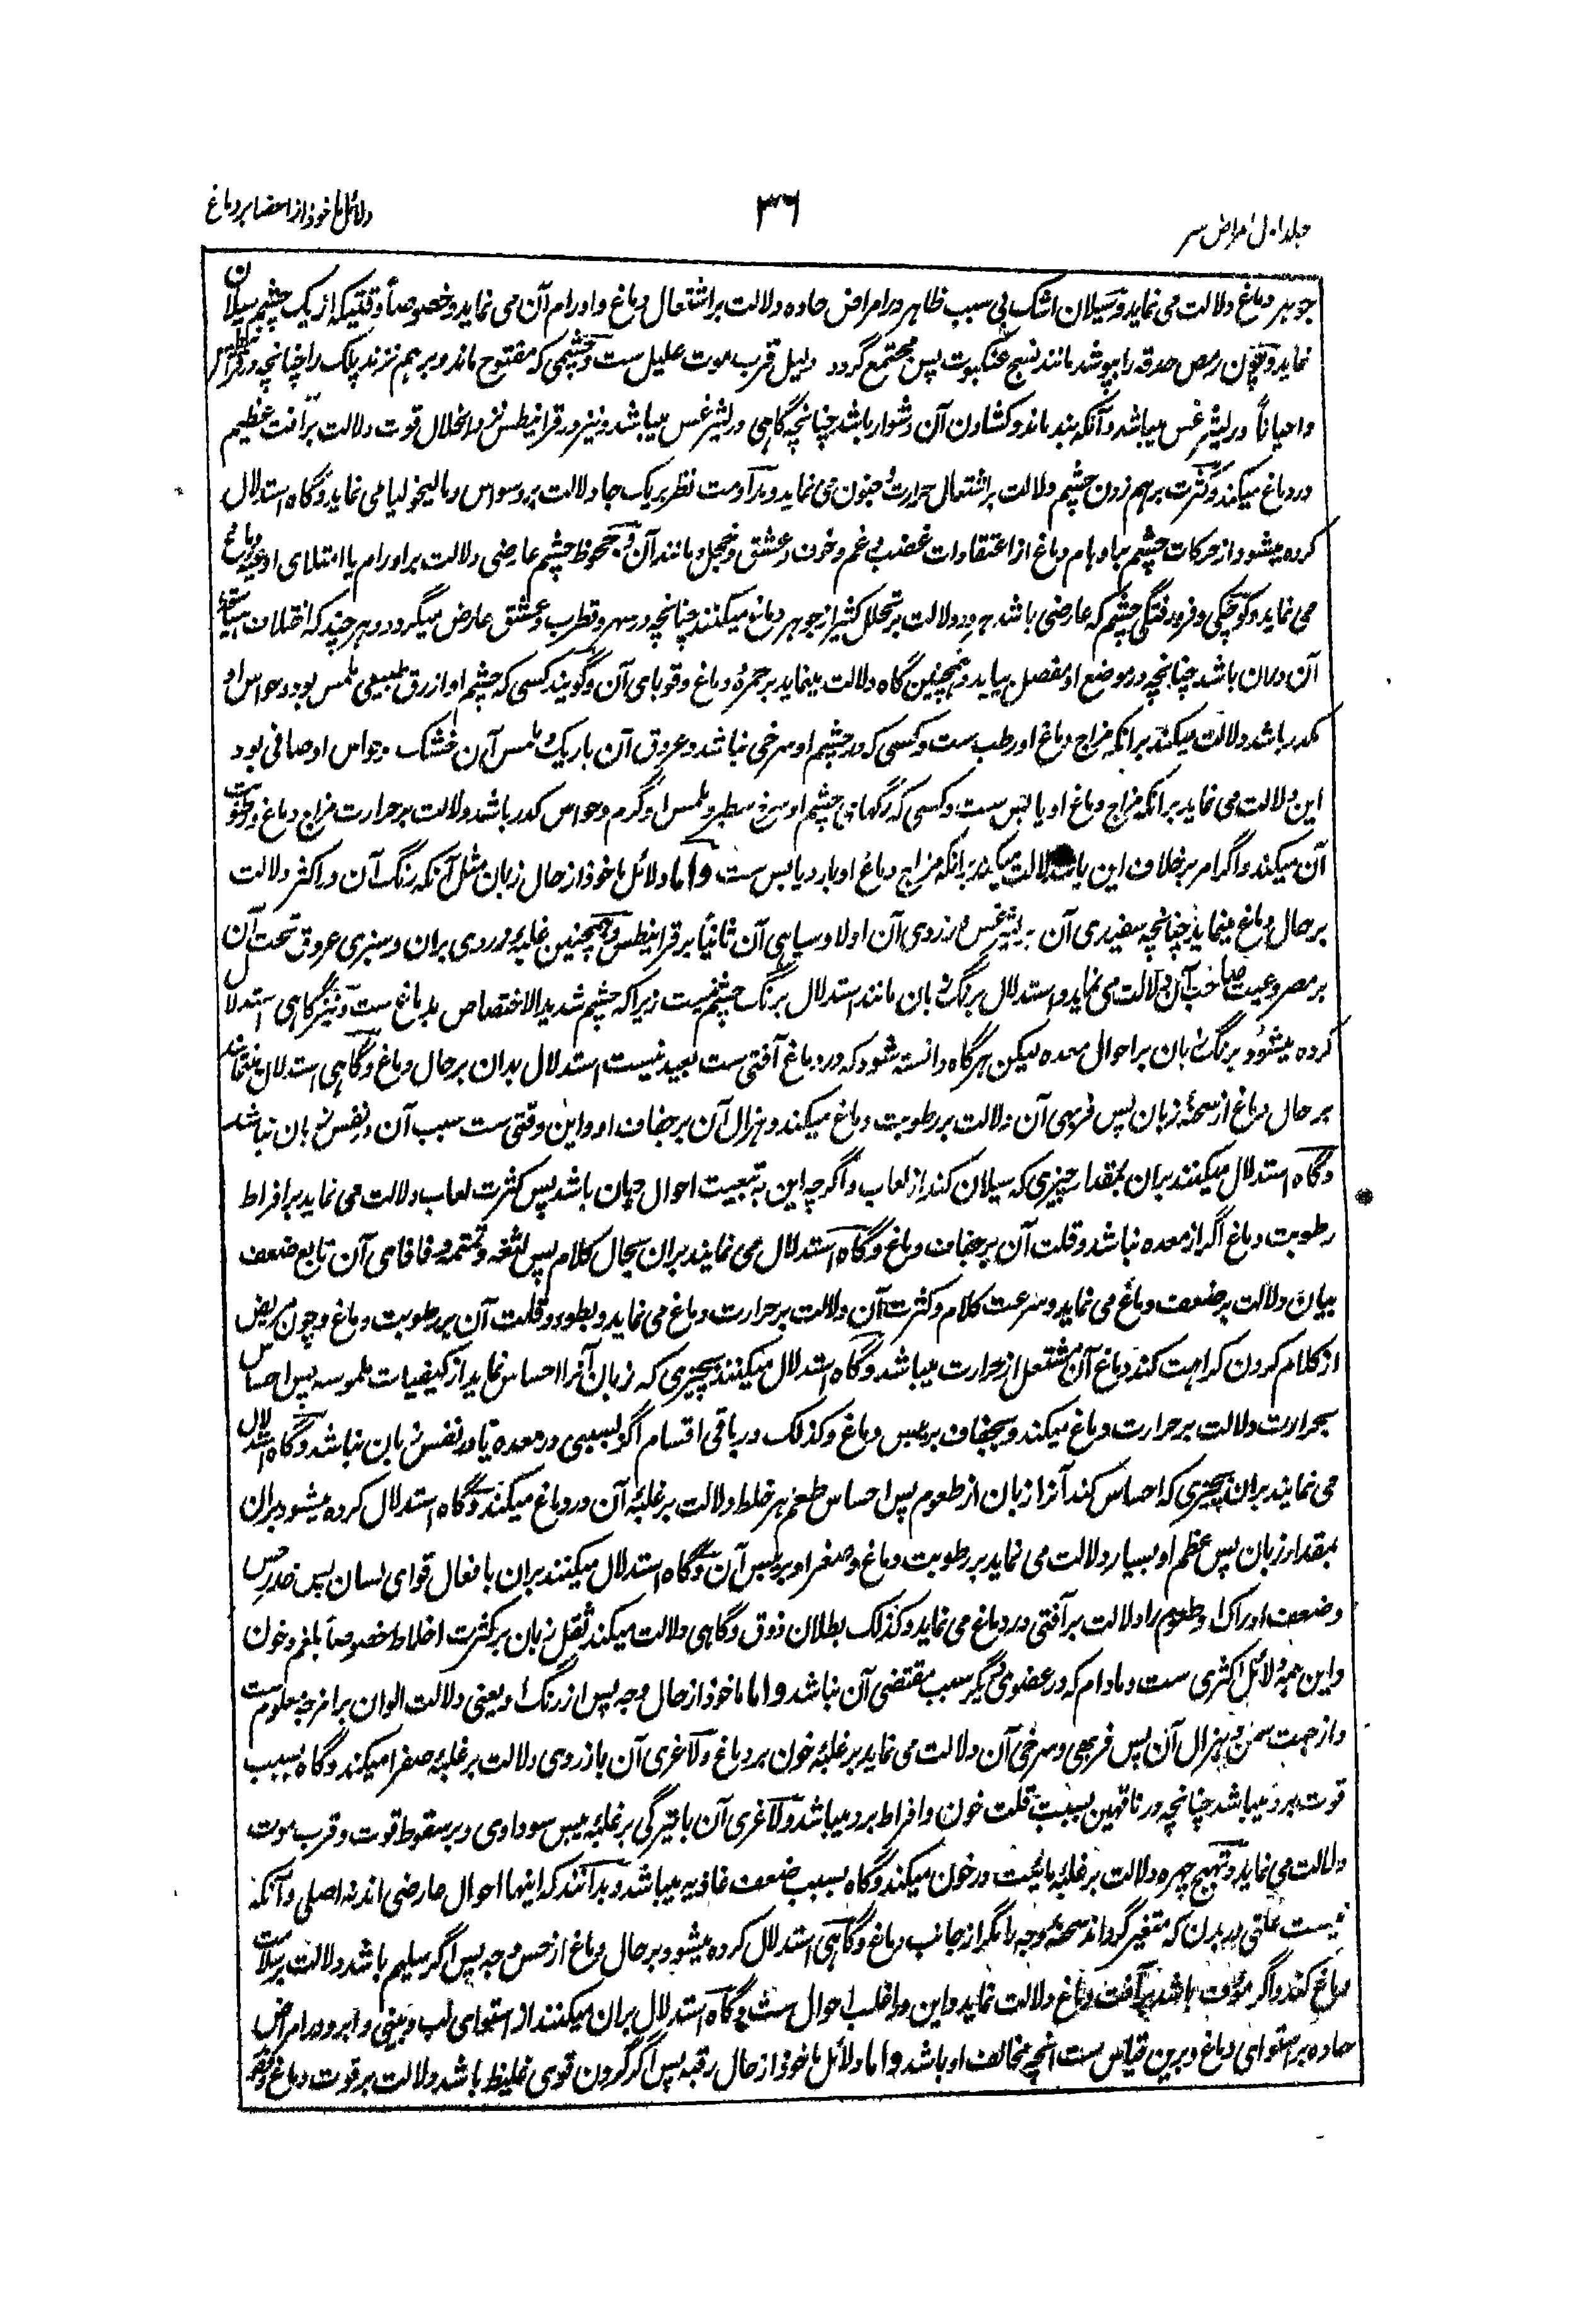 جلد اول امراض سر
۳۶
دلائل ماخوذ از اعضا بر دماغ
جوهر دماغ دلالت می نماید و سیلان اشک بی سبب ظاهر در امراض حاده دلالت بر اشتعال دماغ و اورام آن می نماید و خصوصاً وقتیکه از یک چشم سیلان
نماید و چون رمص حدقه را بپوشد مانند نسج عنکبوت پس مجتمع گردد دلیل قرب موت علیل ست و چشمی که مفتوح ماند و بر هم نزند پلک را چنانچه در قرانیطس
و احیاناً در لیثرغس میباشد و آنکه بند ماند و کشادن آن دشوار باشد چنانچه گاهی در لیثرغس میباشد و نیز در قرانیطس نزد انحلال قوت دلالت بر آفت عظیم
در دماغ میکند و کثرت بر هم زدن چشم دلالت بر اشتعال حرارت و جنون می نماید و مداومت نظر بر یک جا دلالت بر وسواس و مالیخولیا می نماید و گاه استدلال
کرده میشود از حرکات چشم بر اوهام دماغ از اعتقادات غضب و غم و خوف و عشق و خجل و مانند آن و جحوظ چشم عارضی دلالت بر اورام یا امتلای اوعیه دماغ
می نماید و کوچکی و فرورفتگی چشم که عارضی باشد هر دو دلالت بر تحلل کثیر از جوهر دماغ میکنند چنانچه در سهر و قطرب و عشق عارض میگردد و هر چند که اختلاف هیأة
آن در ان باشد چنانچه در موضع او مفصل بیاید و همچنین گاه دلالت مینماید بر حمرهٔ دماغ و قوبای آن و گویند کسی که چشم او ازرق طبیعی ملمس بود و حواس او
مکدر باشد دلالت میکند بر آنکه مزاج دماغ او رطب ست و کسی که در چشم او سرخی نباشد و عروق آن باریک و ملمس آن خشک و حواس او صافی بود
این دلالت می نماید بر آنکه مزاج دماغ او یابس ست و کسی که رگهای چشم او سرخ سطبر و ملمس او گرم و حواس کدر باشد دلالت بر حرارت مزاج دماغ و رطوبت
آن میکند و اگر امر بر خلاف این باشد دلالت میکند بر آنکه مزاج دماغ او بارد یابس ست و اما دلائل ماخوذ از حال زبان مثل آنکه رنگ آن در اکثر دلالت
بر حال دماغ مینماید چنانچه سفیدی آن بر لیثرغس و زردی آن اولا و سیاهی آن ثانیاً بر قرانیطس و همچنین غلبهٔ زردی بران و سبزی عروق تحت آن
بر مصروعیت صاحب آن دلالت می نماید و استدلال برنگ زبان مانند استدلال برنگ چشم نیست زیرا که چشم شدید الاختصاص بدماغ ست و نیز گاهی استدلال
کرده میشود برنگ زبان بر احوال معده لیکن هرگاه دانسته شود که در دماغ آفتی ست بعید نیست استدلال بدان بر حال دماغ و گاهی استدلال مینمایند
بر حال دماغ از سحنهٔ زبان پس فربهی آن دلالت بر رطوبت دماغ میکند و هزال آن بر جفاف او و این وقتی ست سبب آن در نفس زبان نباشد
و گاه استدلال میکنند بران بمقدار چیزی که سیلان کند از لعاب و اگرچه این به تبعیت احوال دهان باشد پس کثرت لعاب دلالت می نماید بر افراط
رطوبت دماغ اگر از معده نباشد و قلت آن بر جفاف دماغ و گاه استدلال می نمایند بران بحال کلام پس لثغه و تمتمه و فافای آن تابع ضعف
بیان دلالت بر ضعف دماغ می نماید و سرعت کلام و کثرت آن دلالت بر حرارت دماغ می نماید و بطور و قلت آن بر رطوبت دماغ و چون مریض
از کلام کردن کراهت کند دماغ آن مشتعل از حرارت میباشد و گاه استدلال میکنند بچیزی که زبان آنرا احساس نماید از کیفیات ملموسه پس احساس
بحرارت دلالت بر حرارت دماغ میکند و بجفاف بر یبس دماغ و کذلک در باقی اقسام اگر بسببی در معده یا در نفس زبان نباشد و گاه استدلال
می نمایند بران بچیزی که احساس کند آنرا زبان از طعوم پس احساس طعم هر خلط دلالت بر غلبهٔ آن در دماغ میکند و گاه استدلال کرده میشود بران
بمقدار زبان پس عظم او بسیار دلالت می نماید بر رطوبت دماغ و صغر او بر یبس آن و گاه استدلال میکنند بران بافعال قوای لسان پس خدر حس
و ضعف ادراک او طعوم را دلالت بر آفتی در دماغ می نماید و کذلک بطلان ذوق و گاهی دلالت میکند ثقل زبان بر کثرت اخلاط خصوصاً بلغم و خون
و این همه دلائل اکثری ست و مادام که در عضوی دیگر سبب مقتضی آن نباشد و اما ماخوذ از حال وجه پس از رنگ او یعنی دلالت الوان بر امزجه معلوم ست
و از جهت سمن و هزال آن پس فربهی و سرخی آن دلالت می نماید بر غلبهٔ خون بر دماغ و لاغری آن با زردی دلالت بر غلبهٔ صفرا میکند و گاه بسبب
قوت برد میباشد چنانچه در ناقهین بسبب قلت خون و افراط برد میباشد و لاغری آن با تیرگی بر غلبهٔ یبس سوداوی و بر سقوط قوت و قرب موت
دلالت می نماید و تهیج چهره دلالت بر غلبهٔ مائیت در خون میکند و گاه بسبب ضعف غاذیه میباشد و بدانند که اینها احوال عارضی اند نه اصلی و آنکه
نیست علتی در بدن که متغیر گرداند سحنهٔ وجه را مگر از جانب دماغ و گاهی استدلال کرده میشود بر حال دماغ از حس وجه پس اگر سلیم باشد دلالت بر سلامت
دماغ کند و اگر مؤوف باشد بر آفت دماغ دلالت نماید و این در اغلب احوال ست و گاه استدلال بران میکنند از استوای لب و بینی و ابرو در امراض
حاده بر استوای دماغ و برین قیاس ست انچه مخالف او باشد و اما دلائل ماخوذ از حال رقبه پس اگر گردن قوی غلیظ باشد دلالت بر قوت دماغ